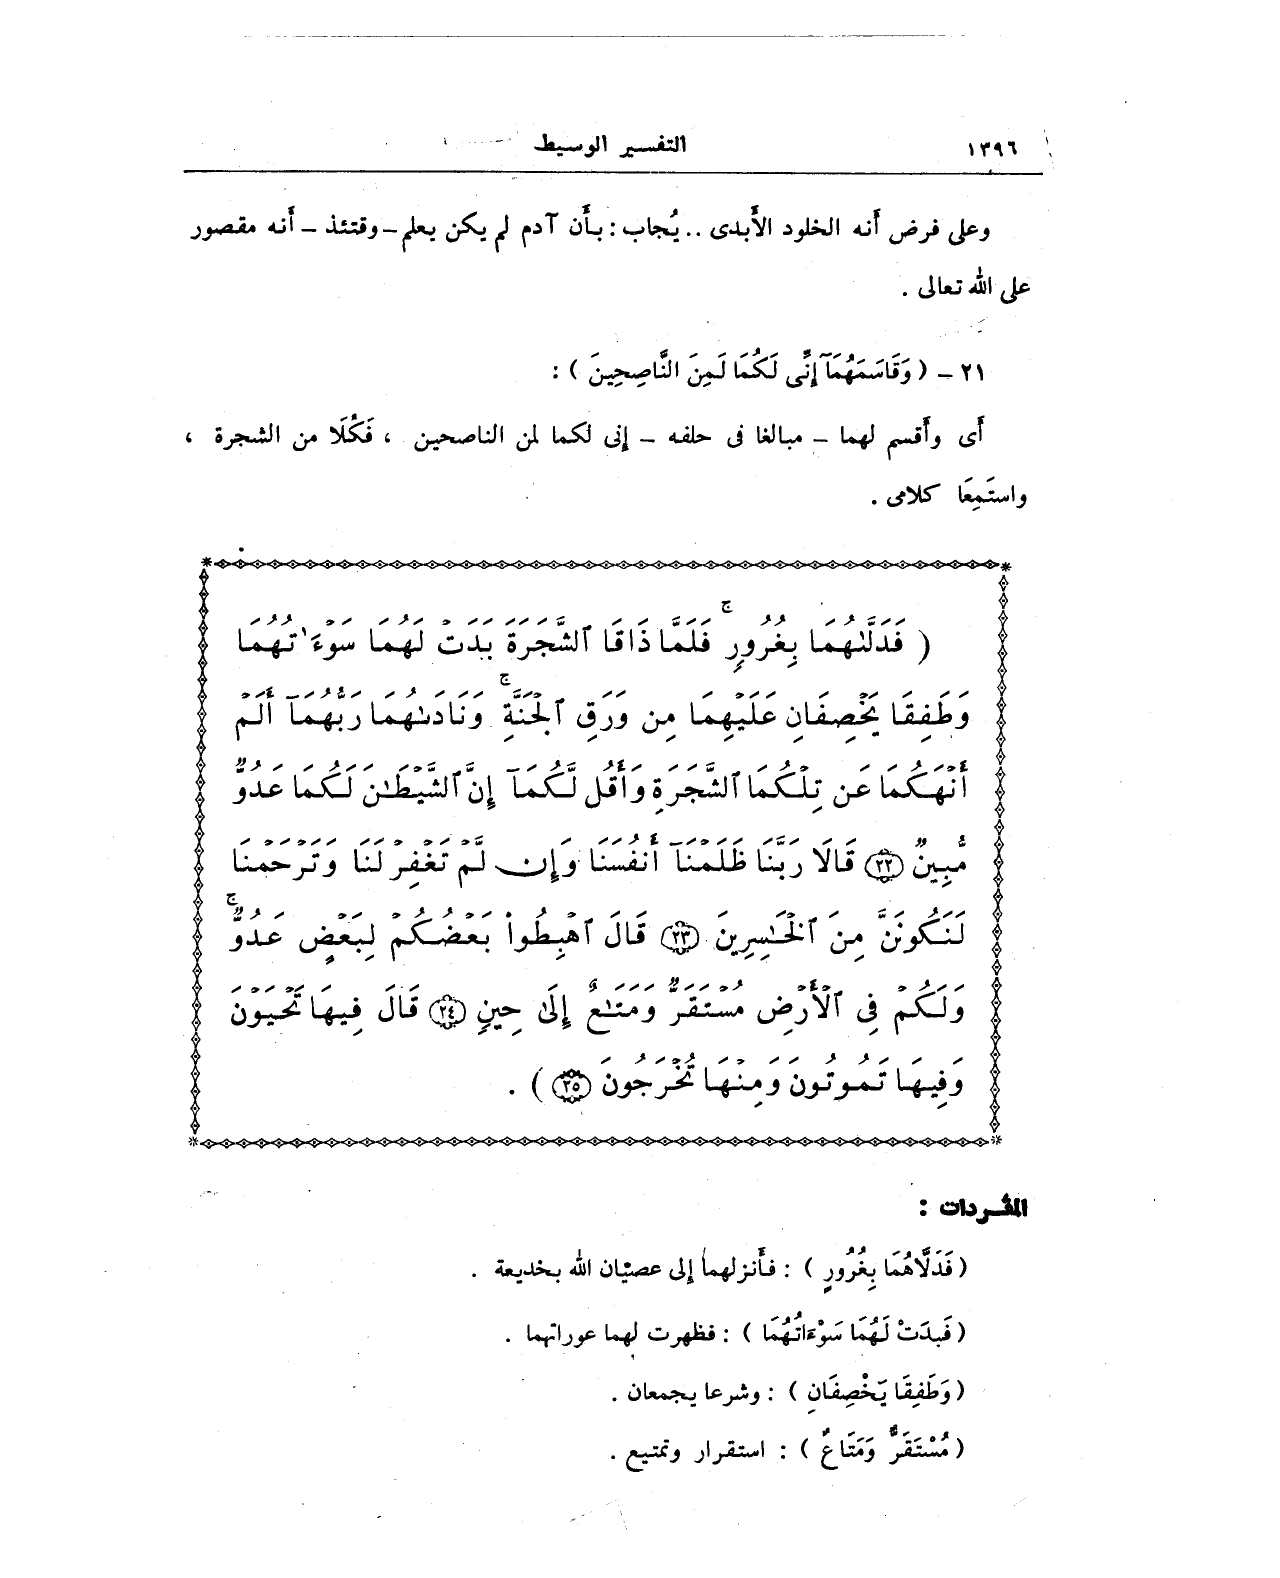 ١٣٩٦ التفسير الوسيط
وعلى فرض أَنه الخلود الأَبدى .. يُجاب : بأَن آدم لم يكن يعلم - وقتئذ - أَنه مقصور
على الله تعالى .
٢١ - ( وَقَاسَمَهُمَآ إِنِّى لَكُمَا لَمِنَ النَّاصِحِينَ ) :
أَى وأَقسم لهما - مبالغا فى حلفه - إِنى لكما لمن الناصحين ، فَكُلَا من الشجرة ،
واستَمِعَا كلامى .
( فَدَلَّىٰهُمَا بِغُرُورٍ ۚ فَلَمَّا ذَاقَا ٱلشَّجَرَةَ بَدَتْ لَهُمَا سَوْءَٰتُهُمَا
وَطَفِقَا يَخْصِفَانِ عَلَيْهِمَا مِن وَرَقِ ٱلْجَنَّةِ ۚ وَنَادَىٰهُمَا رَبُّهُمَآ أَلَمْ
أَنْهَكُمَا عَن تِلْكُمَا ٱلشَّجَرَةِ وَأَقُل لَّكُمَآ إِنَّ ٱلشَّيْطَٰنَ لَكُمَا عَدُوٌّ
مُّبِينٌ ﴿٢٢﴾ قَالَا رَبَّنَا ظَلَمْنَآ أَنفُسَنَا وَإِن لَّمْ تَغْفِرْ لَنَا وَتَرْحَمْنَا
لَنَكُونَنَّ مِنَ ٱلْخَٰسِرِينَ ﴿٢٣﴾ قَالَ ٱهْبِطُواْ بَعْضُكُمْ لِبَعْضٍ عَدُوٌّ ۚ
وَلَكُمْ فِى ٱلْأَرْضِ مُسْتَقَرٌّ وَمَتَٰعٌ إِلَىٰ حِينٍ ﴿٢٤﴾ قَالَ فِيهَا تَحْيَوْنَ
وَفِيهَا تَمُوتُونَ وَمِنْهَا تُخْرَجُونَ ﴿٢٥﴾ ) .
المفردات :
( فَدَلَّاهُمَا بِغُرُورٍ ) : فأَنزلهما إلى عصيان الله بخديعة .
( فَبَدَتْ لَهُمَا سَوْءَاتُهُمَا ) : فظهرت لهما عوراتهما .
( وَطَفِقَا يَخْصِفَانِ ) : وشرعا يجمعان .
( مُسْتَقَرٌّ وَمَتَاعٌ ) : استقرار وتمتيع .